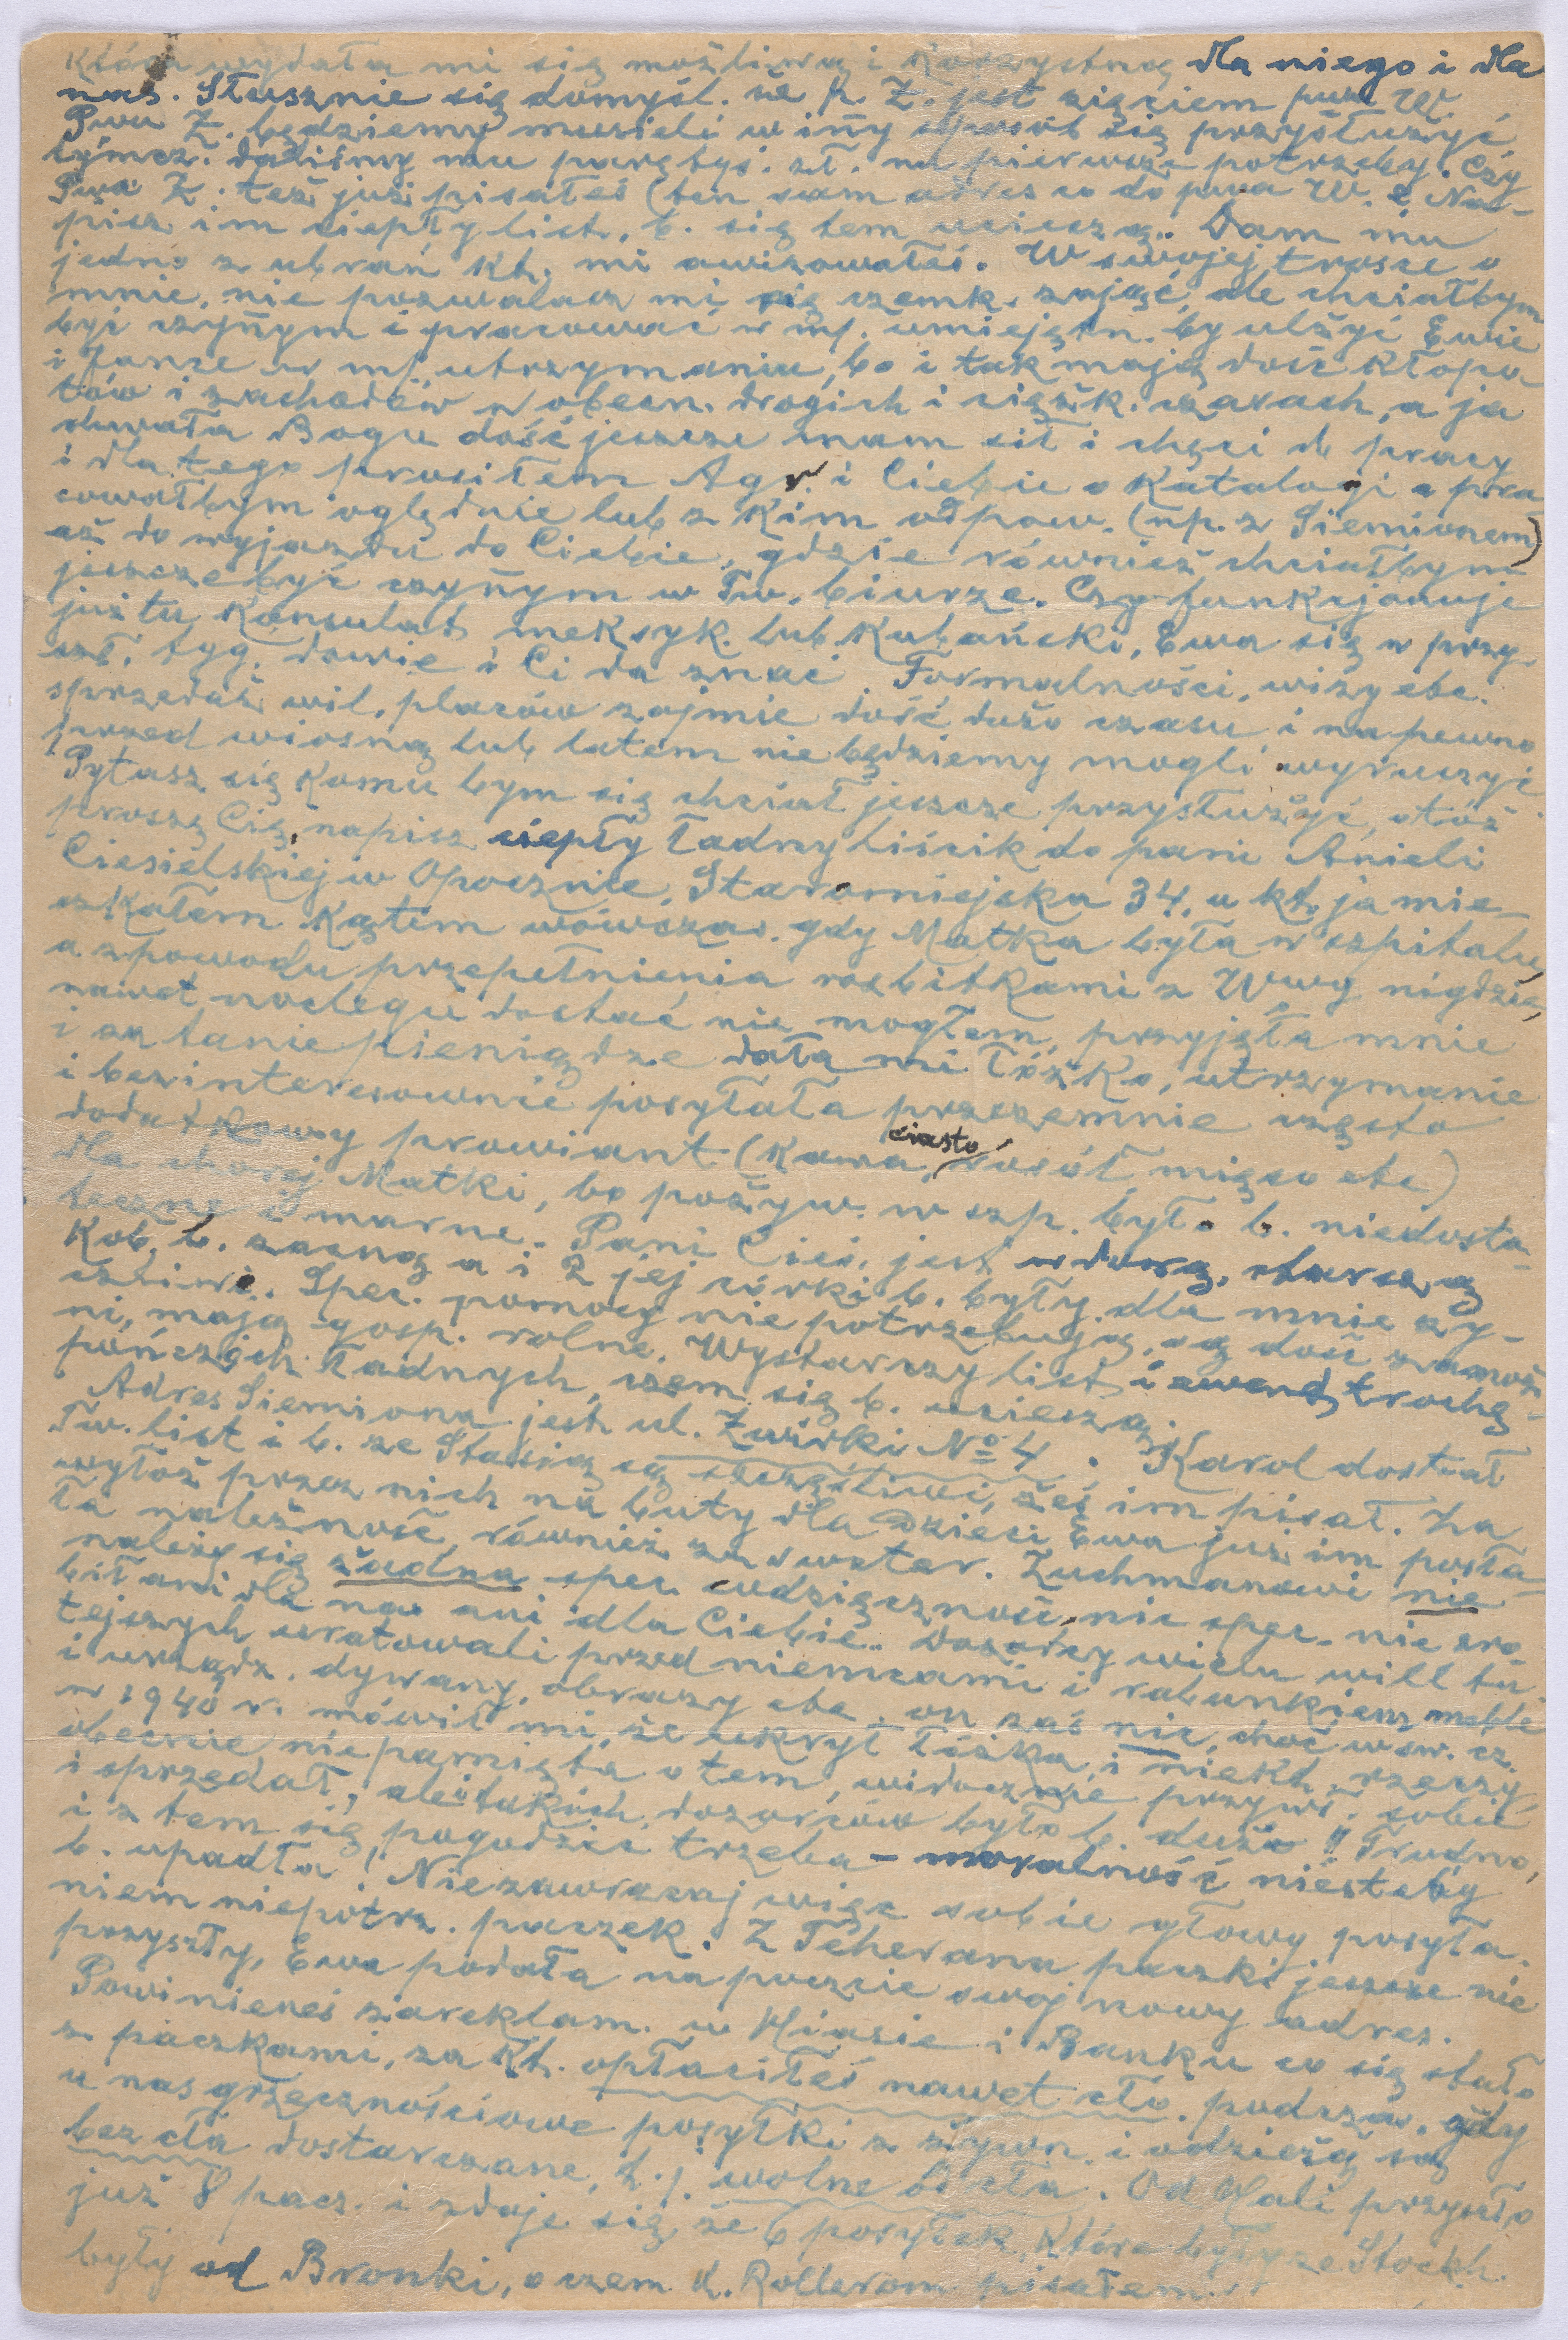 która wydała mi się możliwą i korzystną dla niego i dla
nas. Słusznie się domyśl. że p. Z. jest zięciem pwa W.
Pwu Z. będziemy musieli w iñy sposób się przysłużyć
tymcz. daliśmy mu parę tyś. zł. na pierwsze potrzeby. Czy
Pwa Z. też już pisałeś (ten sam adres co do pwa W. ? Na-
pisz im ciepły list, b. się tem ucieszą. Dam mu
jedno z ubrań kt. mi awizowałeś. W swojej trosce o
mnie, nie pozwalasz mi się czemk. zająć, ale chciałbym
być czyñym i pracować w mj. umiejętn. by ulżyć Ewie
i Jance w mj. utrzymaniu, bo i tak mają dość kłopo-
tów i zachodów w obecn. drogich i ciężk. czasach, a ja
chwała Bogu dość jeszcze mam sił i chęci do pracy
i dla tego prosiłem Agr. i Ciebie o katalogi a pra-
cowałbym oględnie lub z kim odpow. (np. z Siemionem)
aż do wyjazdu do Ciebie, gdzie również chciałbym
jeszcze być czyñym w Tw. biurze. Czy funkcjonuje
już tu Konsulat meksyk. lub Kubański, Ewa się w przy-
szł. tyg. dowie i Ci da znać Formalności, wizy etc.
sprzedaż wil, placów zajmie dość dużo czasu i na pewno
przed wiosną lub latem nie będziemy mogli wyruszyć.
Pytasz się komu bym się chciał jeszcze przysłużyć, otóż
proszę Cię, napisz ciepły ładny liścik do pani Anieli
Ciesielskiej w Opocznie, Staromiejska 34, u kt. ja mie-
szkałem kątem wówczas. gdy Matka była w szpitalu,
a z powodu przepełnienia rozbitkami z Wwy nigdzie,
nawet noclegu dostać nie mogłem, przyjęła mnie
i za tanie pieniądze dała mi łóżko, utrzymanie
i bezinteresownie posyłała przezemnie często
dodatkowy prowiant (kawa, ciasto rosół, mięso etc)
dla chorej Matki, bo pożyw. w szp. było b. niedosta-
teczne i marne. Pani Cieś. jest wdową, starszą
kob. b. zacną a i 2 jej córki b. były dla mnie ży-
czliwe. Spec. pomocy nie potrzebują, są dość zamoż-
ni, mają gosp. rolne. Wystarczy list i ewent. trochę
pończoch ładnych, czem się b. ucieszą.
Adres Siemiona jest ul. Żwirki № 4. Karol dostał
Tw. list i b. ze Stasią są szczęśliwi, żeś im pisał. Za
wyłoż przez nich na buty dla Dzieci Ewa już im posła-
ła należność, również za sweter. Zuchmanowi nie
należy się żadna spec. wdzięczność, nic spec. nie zro-
bił ani dla nas ani dla Ciebie. Dozorcy wielu will tu-
tejszych uratowali przed niemcami i rabunkiem meble
i urządz. dywany, obrazy etc. on zaś nic, choć w sw. cz.
w 1940 r. mówił mi, że ukrył łóżka, i niekt. rzeczy,
obecnie nie pamięta o tem, widocznie przywł. sobie
i sprzedał, ale takich dozorców było b. dużo!! Trudno,
i z tem się pogodzić trzeba – moralność niestety
b. upadła! Niezawracaj więc sobie głowy posyła-
niem niepotrz. paczek. Z Teheranu paczki jeszcze nie
przyszły, Ewa podała na poczcie swój nowy adres.
Powinieneś zareklam. w Hiasie i Banku co się stało
z paczkami, za kt. opłaciłeś nawet cło. podczas. gdy
u nas grzecznościowe posyłki z żywn. i odzieżą są
bez cła dostarczane, t. j. wolne od cła. Od Hali przyszło
już 8 pacz. i zdaje się że 6 posyłek, które były ze Stockh.
były od Bronki, o czem d. Rollerom pisałem.